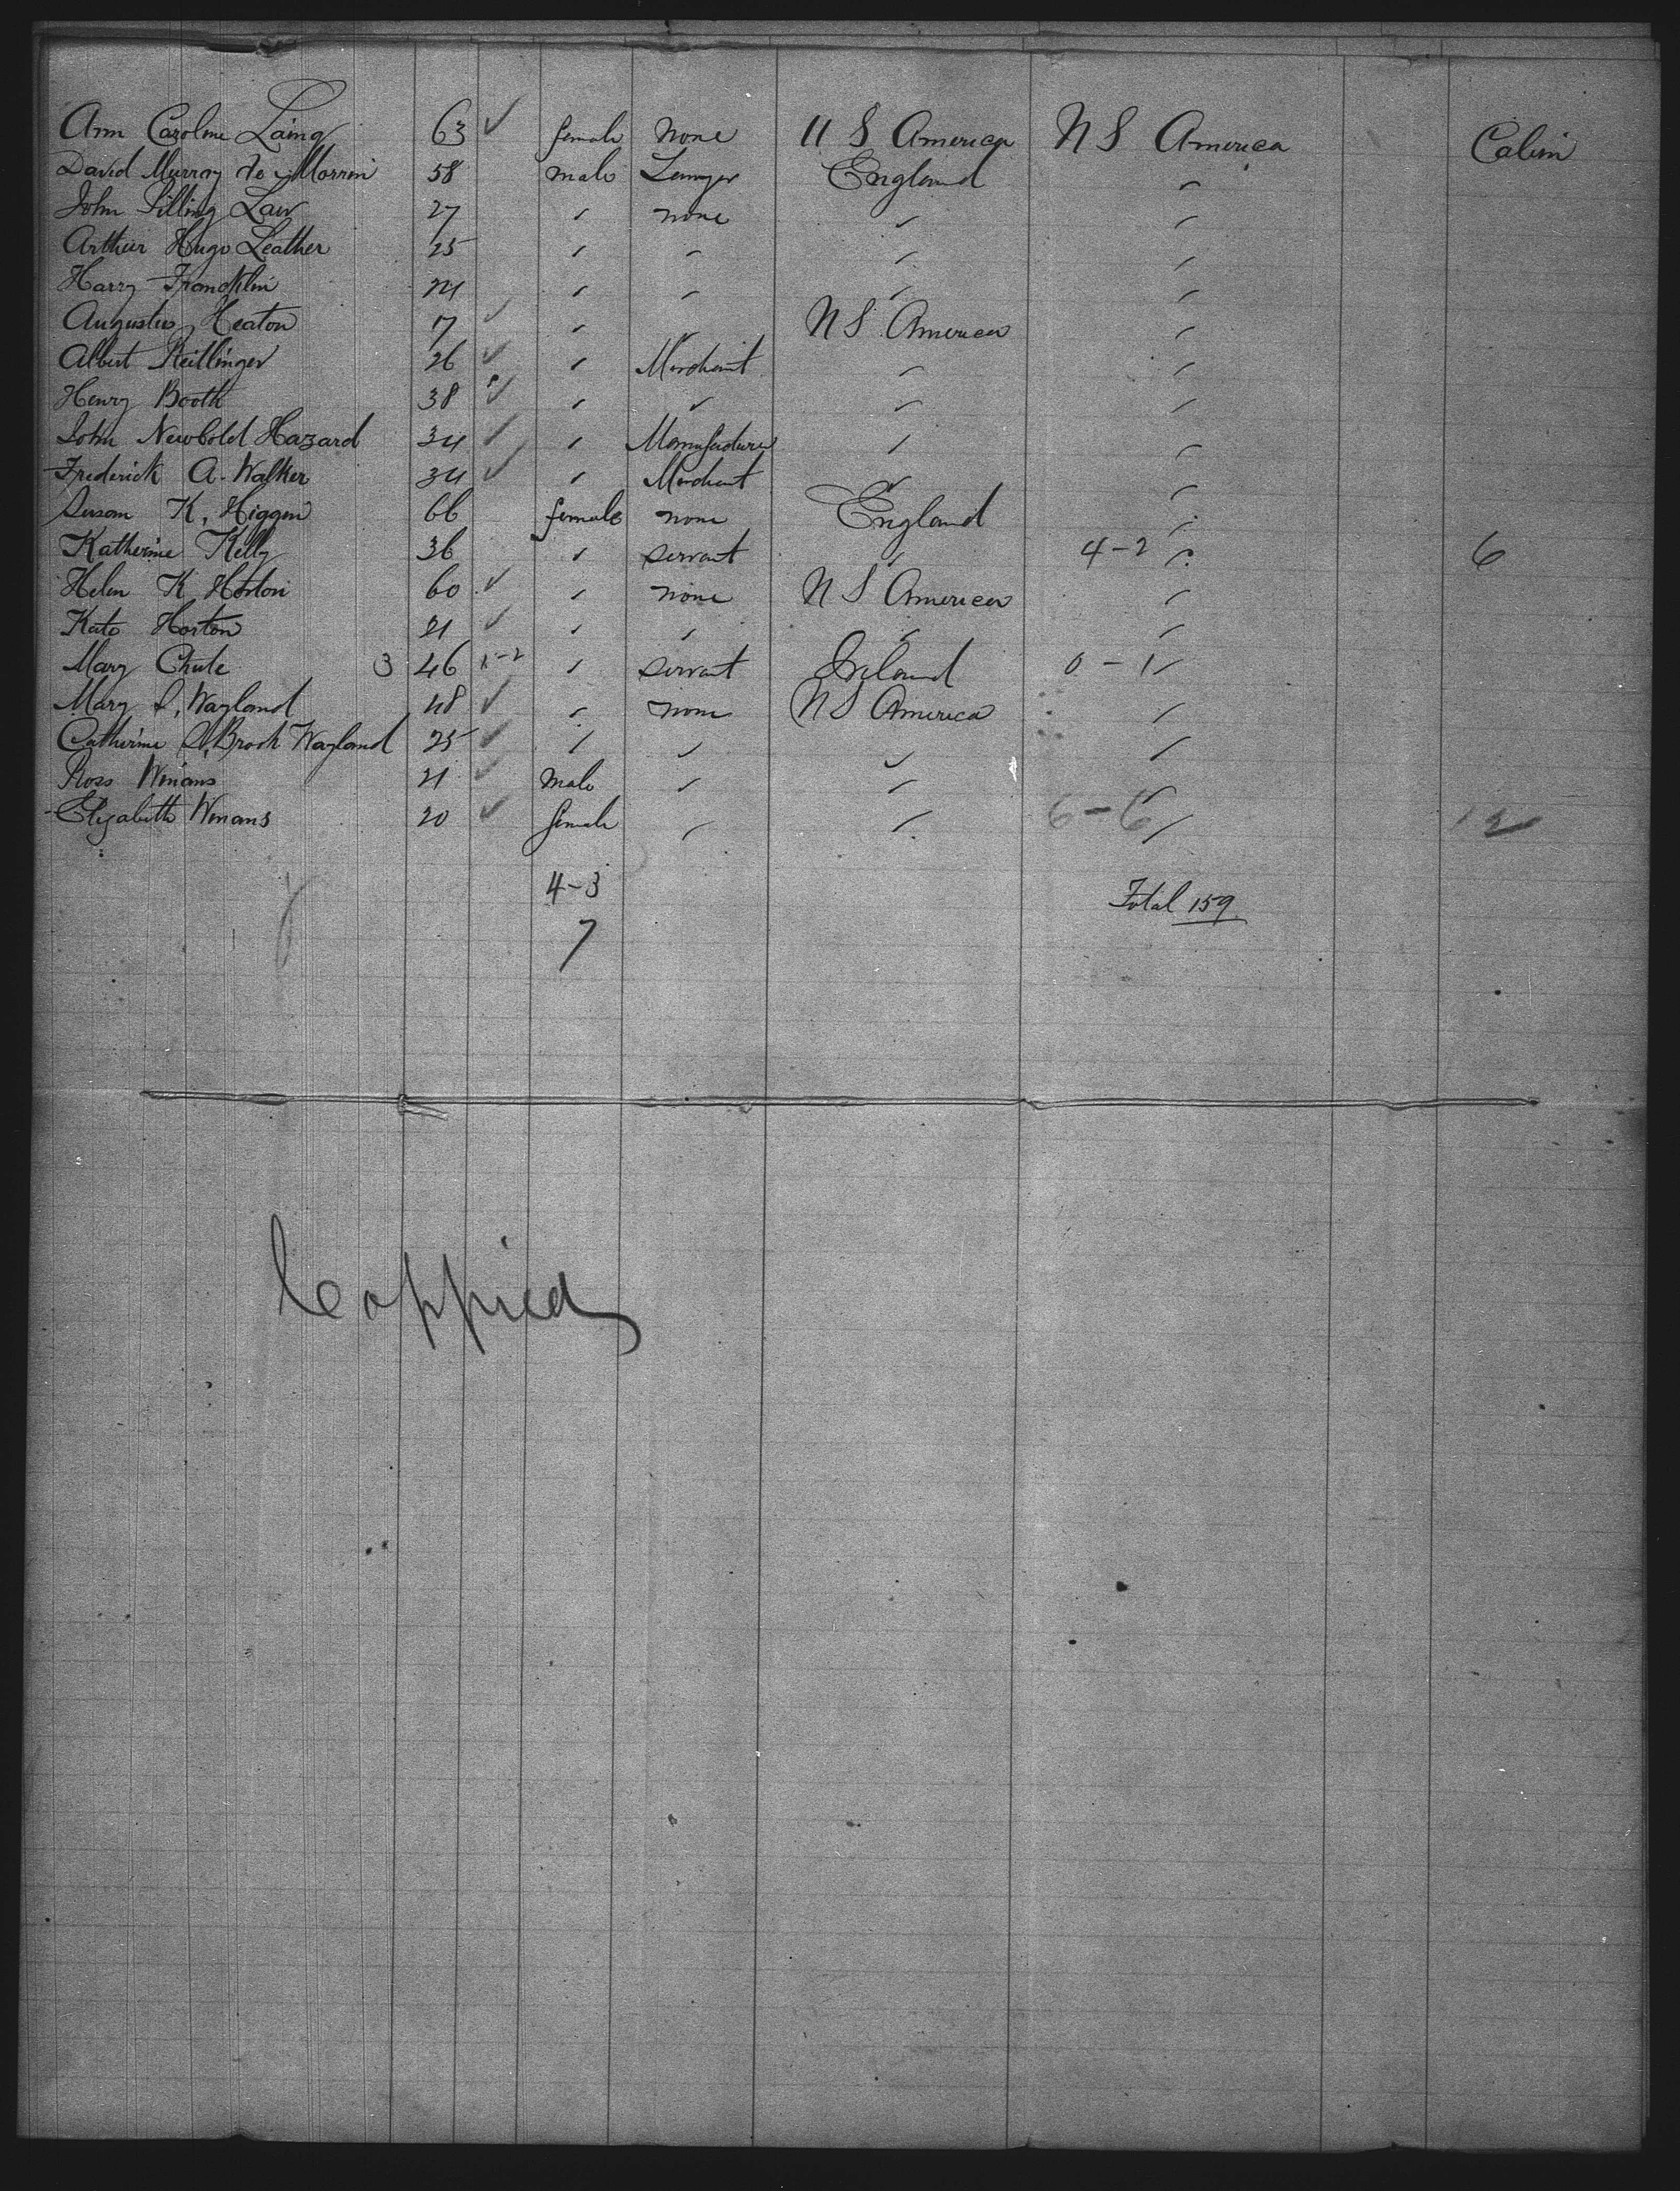 Ann Caroline Laing 63 ✓ female none U S America U S America Cabin
David Murray de Morrin 58 male Lawyer England "
John Silling Law 27 " none " "
Arthur Hugo Leather 25 " " " "
Harry Francklin 24 " " " "
Augustus Heaton 17 ✓ " U S America "
Albert Reitlinger 26 ✓ " Merchant " "
Henry Booth 38 ✓ " " " "
John Newbold Hazard 34 ✓ " Manufacturer " "
Frederick A. Walker 34 ✓ " Merchant " "
Susan K. Higgin 66 female none England "
Katherine Kelly 36 " servant " 4-2 " 6
Helen K Horton 60 ✓ " none U S America "
Kate Horton 21 ✓ " " " "
Mary Chute 3 46 1-2 " servant Ireland 0-1 "
Mary S. Wayland 48 ✓ " none U S America "
Catherine S. Brook Wayland 25 ✓ " " " "
Ross Winans 21 ✓ male " " "
Elizabeth Winans 20 ✓ female " " 6-6 " 12
4-3 Total 159
7
Coppied